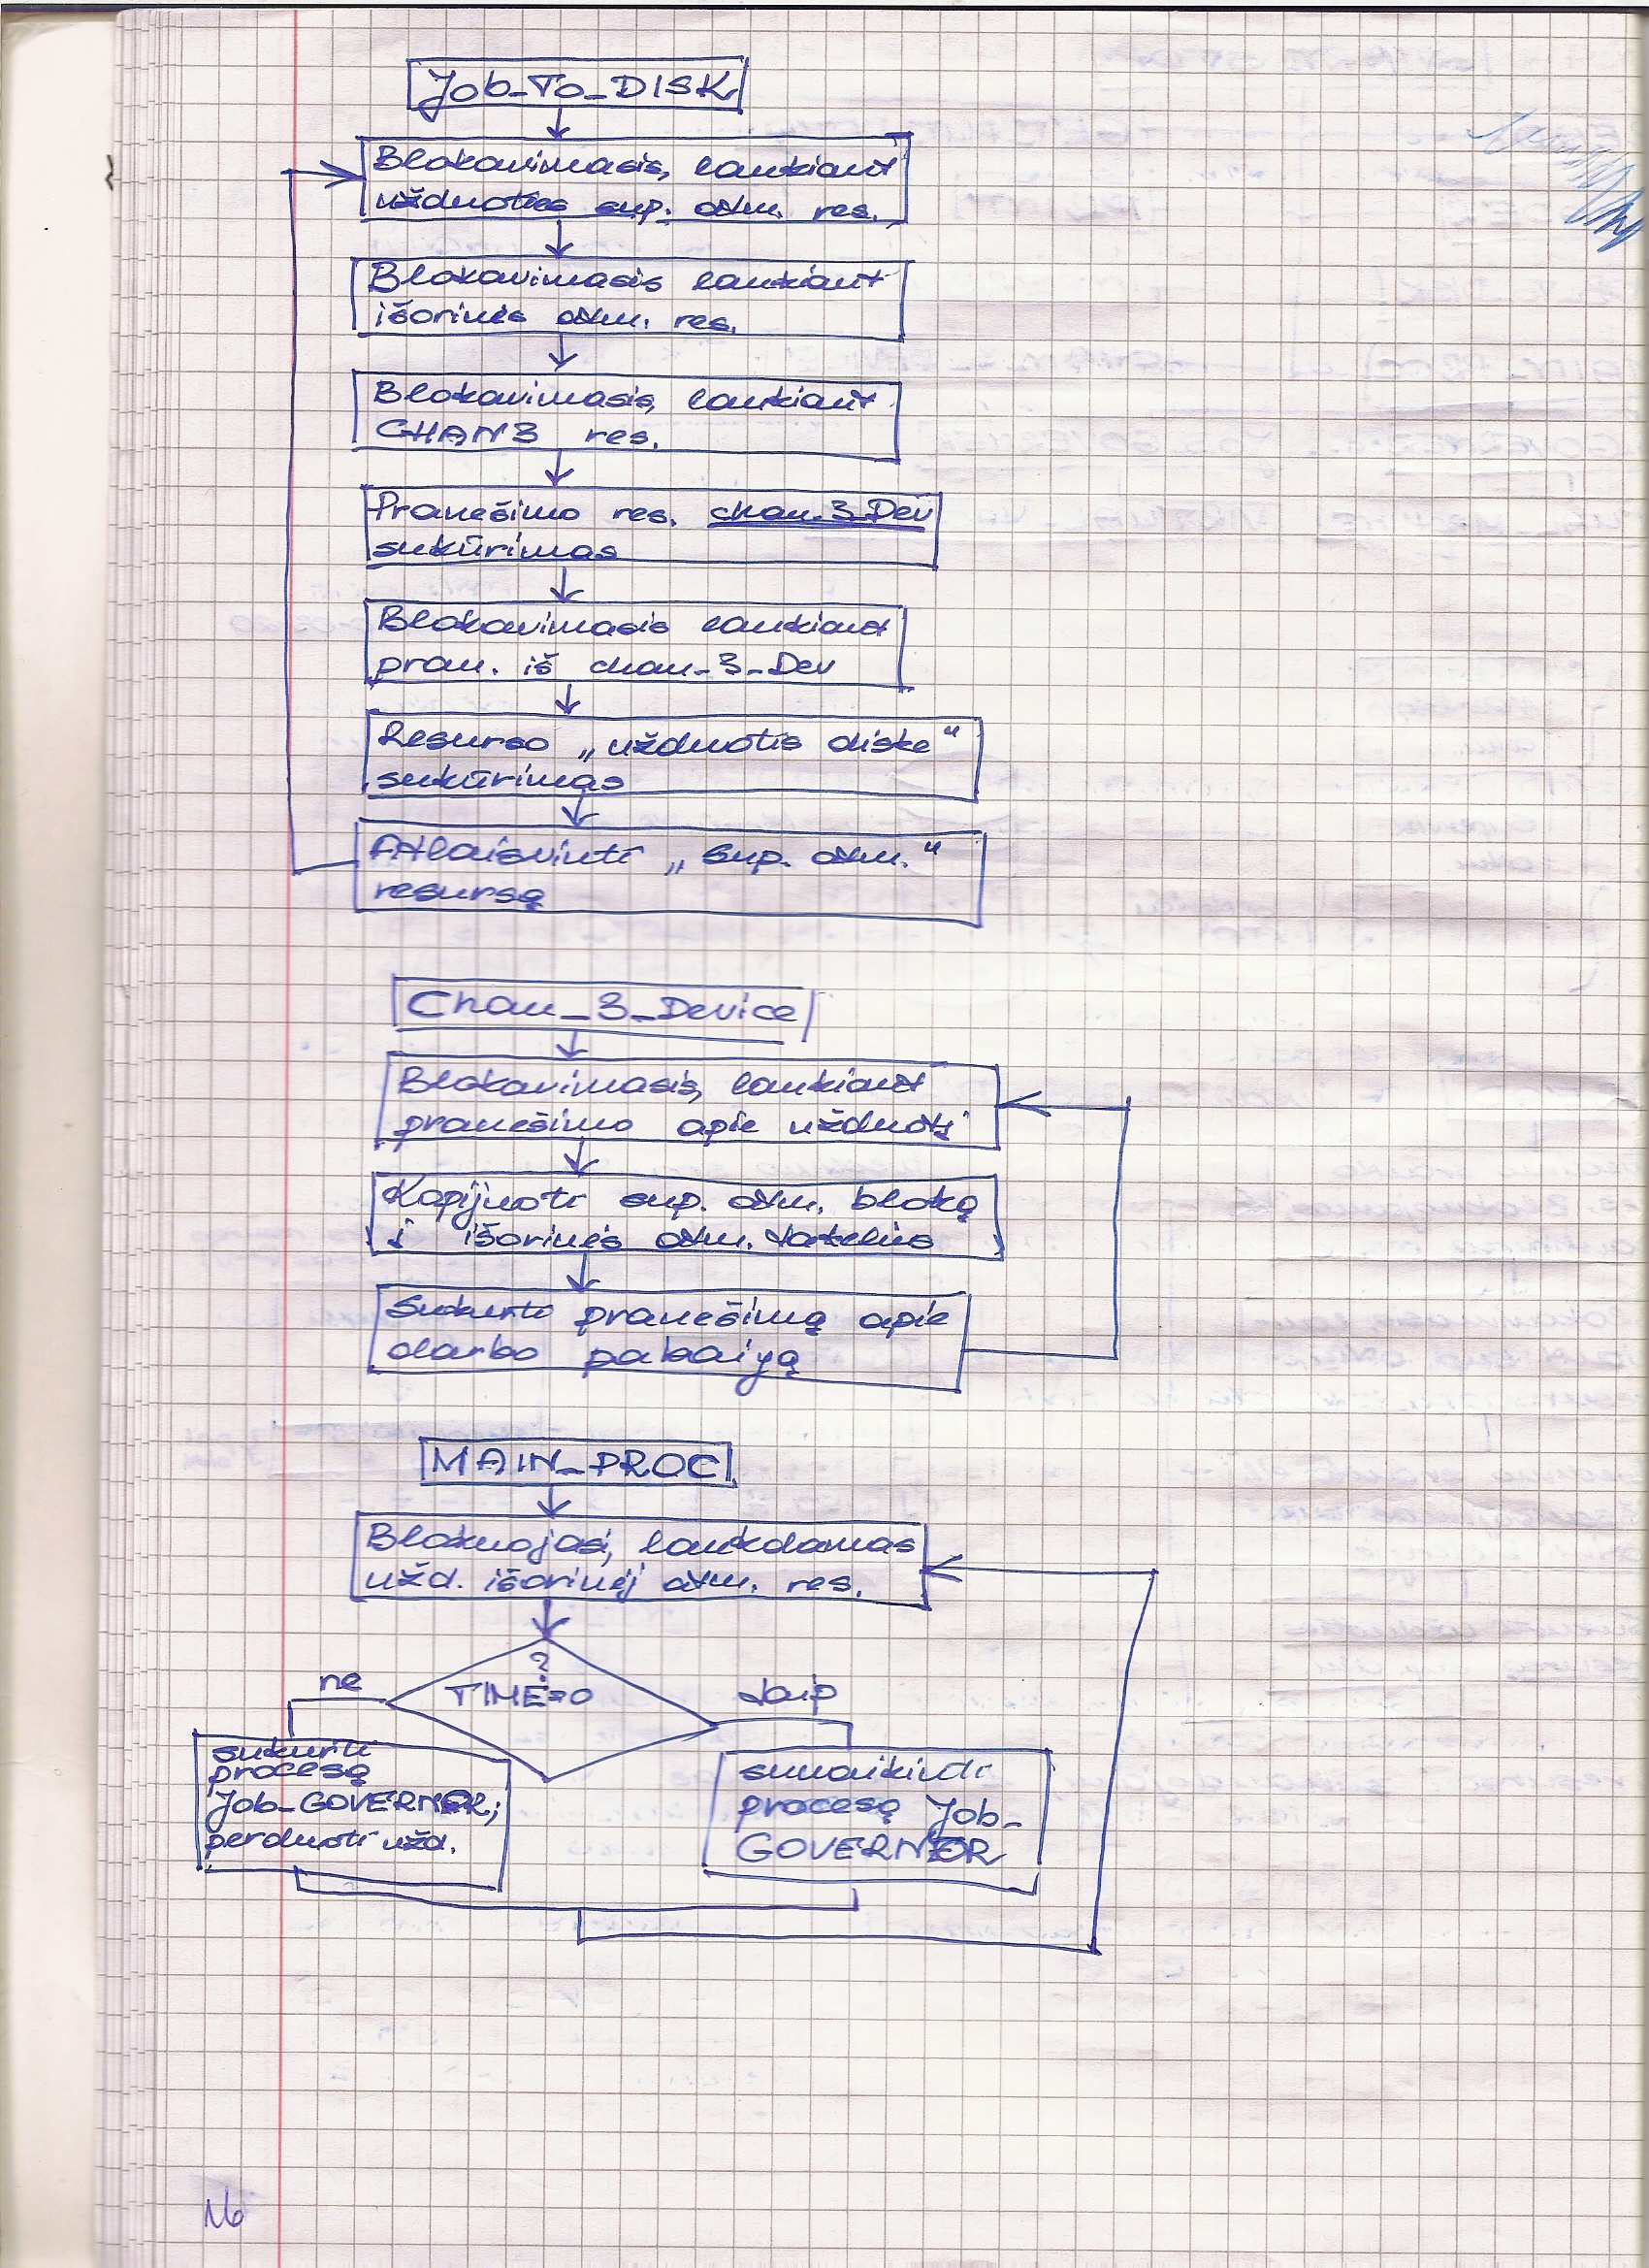 Job_To_DISK
Blokavimasis, laukiant
užduoties sup. atm. res.
Blokavimasis laukiant
išorinės atm. res.
Blokavimasis, laukiant
CHAN3 res.
Pranešimo res. chan_3_Dev
sukūrimas
Blokavimasis laukiant
pran. iš chan_3_Dev
Resurso „užduotis diske“
sukūrimas
Atlaisvinti „sup. atm.“
resursą
Chan_3_Device
Blokavimasis, laukiant
pranešimo apie užduotį
Kopijuoti sup. atm. bloką
į išorinės atm. takelius
Sukurti pranešimą apie
darbo pabaigą
MAIN_PROC
Blokuojasi, laukdamas
užd. išorinėj atm. res.
?
TIME=0
ne
taip
sukurti
procesą
Job_GOVERNOR;
perduoti užd.
sunaikinti
procesą Job_
GOVERNOR
16